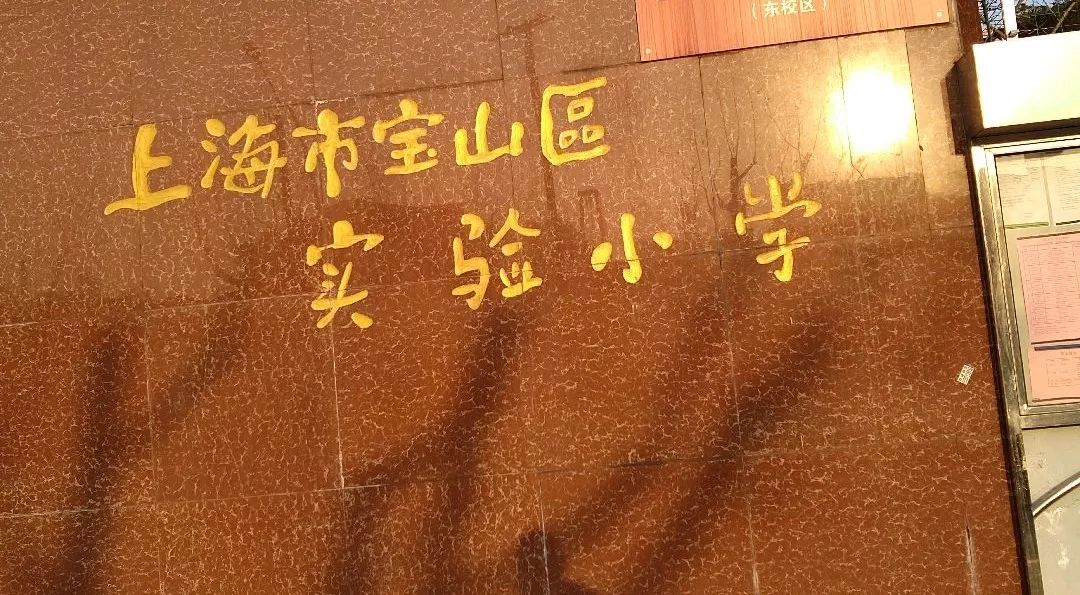 （东校区）
上海市宝山區
实验小学